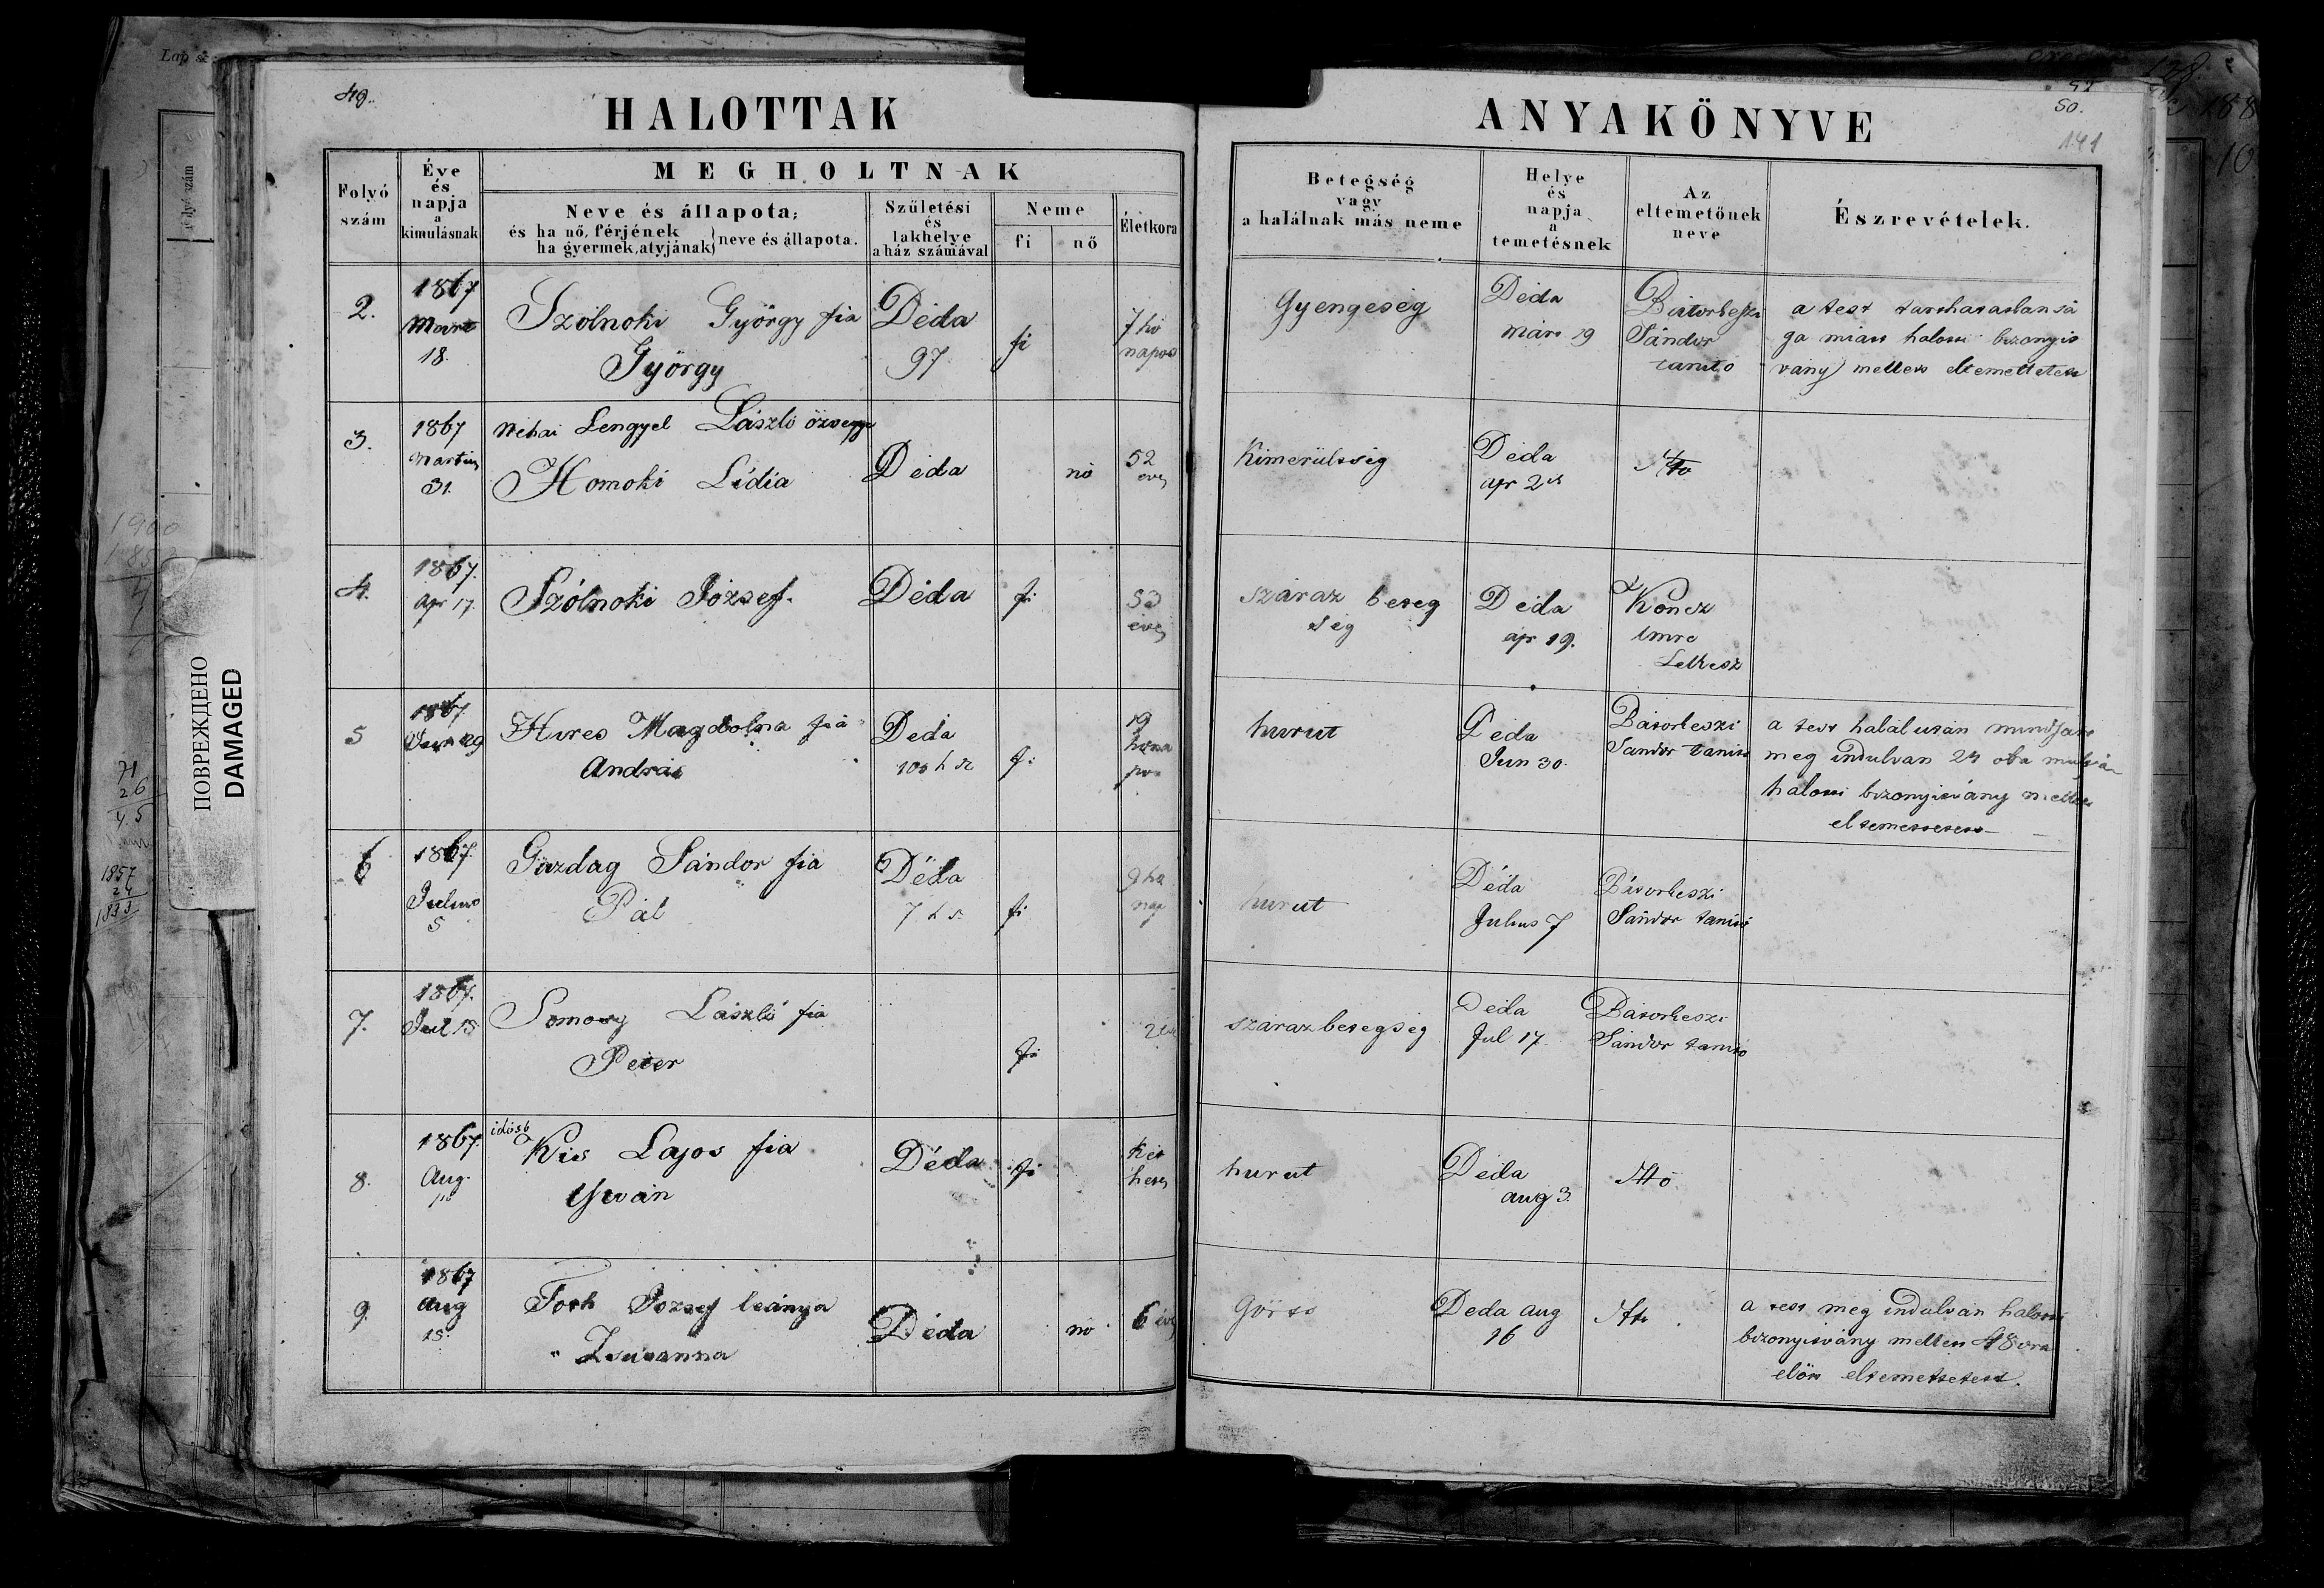 49.
HALOTTAK
Folyó szám
Éve és napja a kimulásnak
MEGHOLTNAK
Neve és állapota;
és ha nő, férjének
ha gyermek, atyjának} neve és állapota.
Születési és lakhelye a ház számával
Neme
fi
nő
Életkora
2.
1867
Mart
18.
Szólnoki György fia
György
Déda
97
fi
7 hó
napos
3.
1867
Martius
31.
Néhai Lengyel László özvegye
Homoki Lídia
Déda
nő
52
éves
4.
1867.
Apr 17.
Szólnoki József.
Déda
fi
53
éves
5
1867.
Jun 29
Hires Magdolna fia
András
Déda
fi
19
6
1867.
Julius
5
Gazdag Sándor fia
Pál
Déda
7 h sz
fi
9 hó
nap
7.
1867.
Jul 15
Somosy László fia
Péter
fi
8.
1867.
Aug.
idősb
Kis Lajos fia
István
Déda
fi
Két
hetes
9.
1867
Aug
15.
Toth József leánya
Zsuzsanna
Déda
nő
6 éves
ANYAKÖNYVE
50.
141
Betegség vagy a halálnak más neme
Helye és napja a temetésnek
Az eltemetőnek neve
Észrevételek.
Gyengeség
Déda
márt 19
Bátorkeszi
Sándor
tanító
a test tarthatatlansá
ga miatt halotti bizonyít
vány mellett eltemettetett
Kimerültség
Déda
apr 2
száraz beteg
ség
Déda
apr 19.
Koncz
Imre
Lelkész
hurut
Déda
Jun 30.
Bátorkeszi
Sándor tanító
a test halál után mindjárt
meg indulván 24 óra mulván
halotti bizonyítvány mellett
eltemettetett
hurut
Déda
Julius 7
Bátorkeszi
Sándor tanító
száraz betegség
Déda
Jul 17.
Bátorkeszi
Sándor tanító
hurut
Déda
aug 3.
Görts
Deda aug
16
a test meg indulván halotti
bizonyítvány mellett 48 óra
előtt eltemettetett.
ПОВРЕЖДЕНО
DAMAGED
1857
24
1833